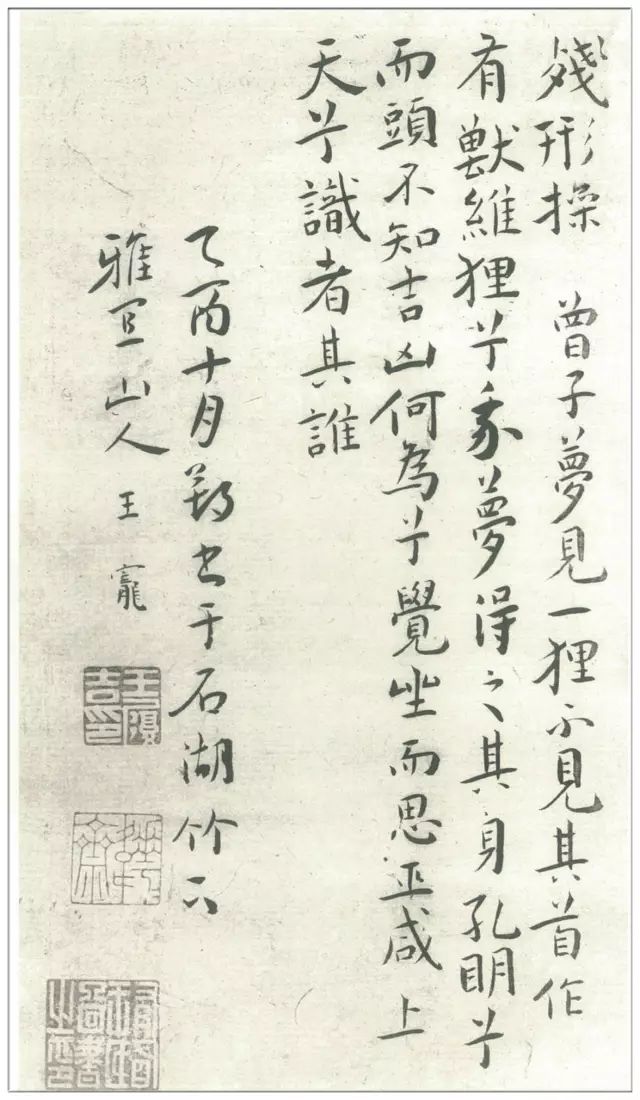 殘形操 曾子夢見一狸不見其首作
有獸維狸兮我夢得之其身孔明兮
而頭不知吉凶何為兮覺坐而思巫咸上
天兮識者其誰
乙酉十月朔書于石湖竹下
雅宜山人王寵
王履吉印